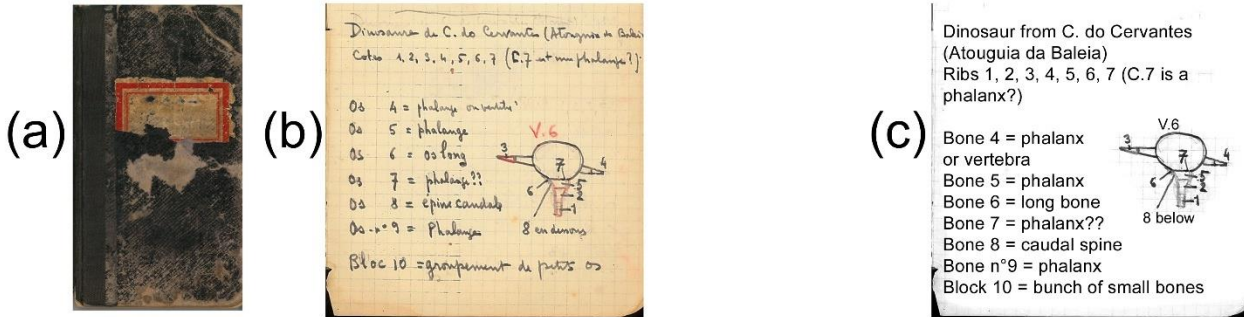 (a)
(b)
Dinosaure de C. do Cervantes (Atouguia da Balei
Cotes 1, 2, 3, 4, 5, 6, 7 (C.7 est une phalange?)
Os 4 = phalange ou vertèbre
Os 5 = phalange
Os 6 = os long
Os 7 = phalange??
Os 8 = epine caudale
Os n° 9 = Phalange
Bloc 10 = groupement de petits os
V.6
3
7
4
6
5
2
1
8 en dessous
(c)
Dinosaur from C. do Cervantes
(Atouguia da Baleia)
Ribs 1, 2, 3, 4, 5, 6, 7 (C.7 is a
phalanx?)
Bone 4 = phalanx
or vertebra
Bone 5 = phalanx
Bone 6 = long bone
Bone 7 = phalanx??
Bone 8 = caudal spine
Bone n°9 = phalanx
Block 10 = bunch of small bones
V.6
3
7
4
6
5
2
1
8 below